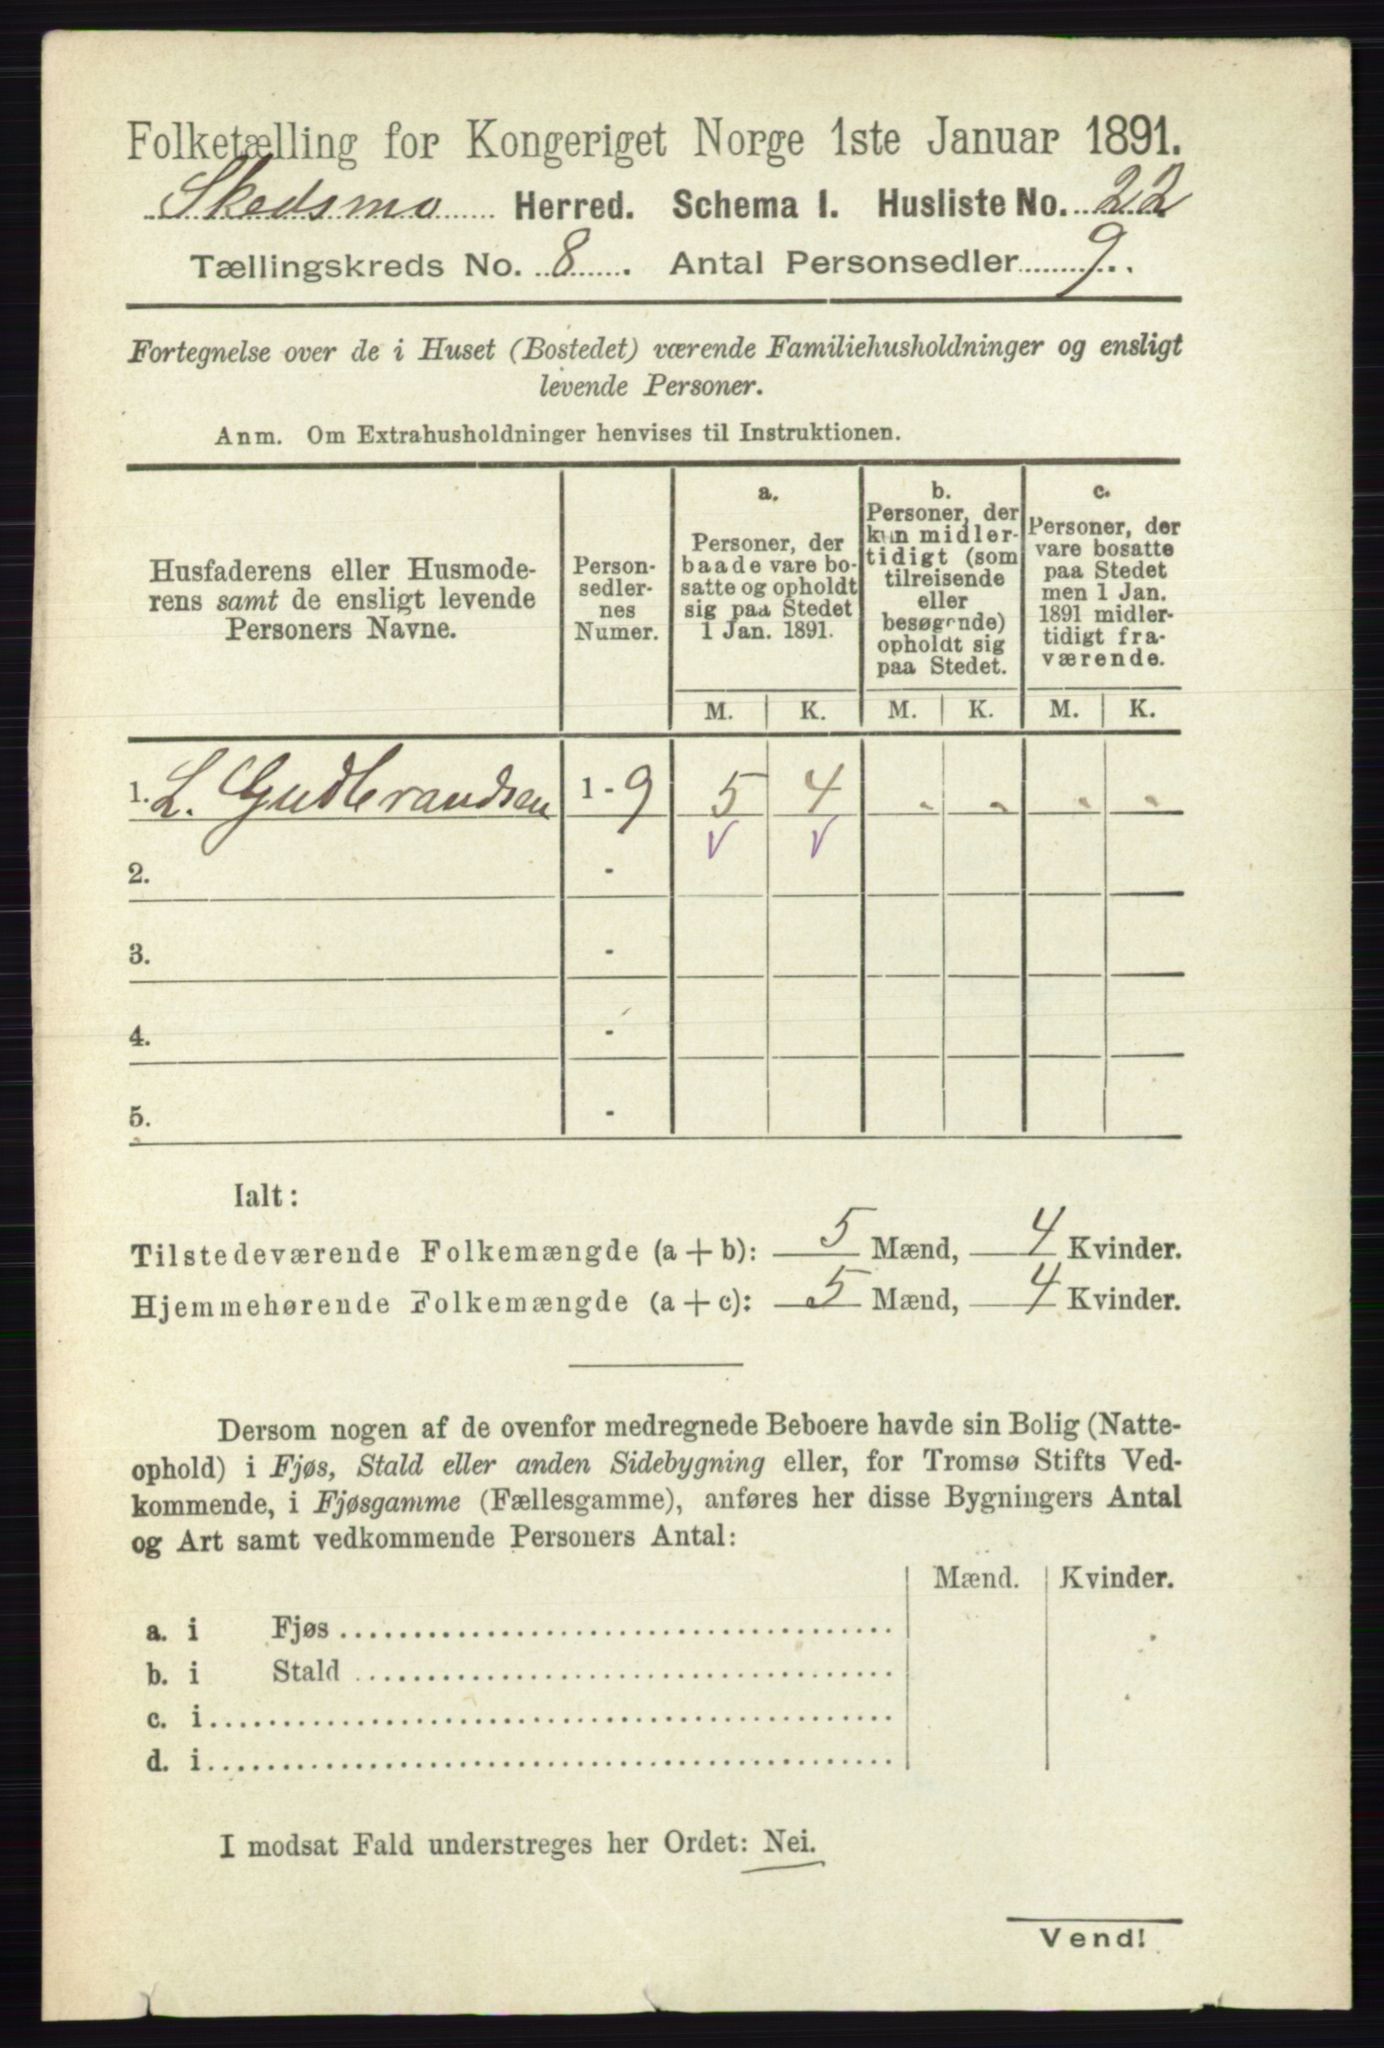 Folketælling for Kongeriget Norge 1ste Januar 1891.
Skedsmo Herred. Schema I. Husliste No. 22
Tællingskreds No. 8. Antal Personsedler 9.
Fortegnelse over de i Huset (Bostedet) værende Familiehusholdninger og ensligt
levende Personer.
Anm. Om Extrahusholdninger henvises til Instruktionen.
Husfaderens eller Husmode-
rens samt de ensligt levende
Personers Navne.
Person-
sedler-
nes
Numer.
a.
Personer, der
baade vare bo-
satte og opholdt
sig paa Stedet
1 Jan. 1891.
b.
Personer, der
kun midler-
tidigt (som
tilreisende
eller
besøgende)
opholdt sig
paa Stedet.
c.
Personer, der
vare bosatte
paa Stedet
men 1 Jan.
1891 midler-
tidigt fra-
værende.
M. K. M. K. M. K.
1. L. Gudbrandsen 1 - 9 5 4 - - - -
2. -
3. -
4. -
5. -
Ialt:
Tilstedeværende Folkemængde (a + b): 5 Mænd, 4 Kvinder.
Hjemmehørende Folkemængde (a + c): 5 Mænd, 4 Kvinder.
Dersom nogen af de ovenfor medregnede Beboere havde sin Bolig (Natte-
ophold) i Fjøs, Stald eller anden Sidebygning eller, for Tromsø Stifts Ved-
kommende, i Fjøsgamme (Fællesgamme), anføres her disse Bygningers Antal
og Art samt vedkommende Personers Antal:
Mænd. Kvinder.
a. i Fjøs
b. i Stald
c. i
d. i
I modsat Fald understreges her Ordet: Nei.
Vend!